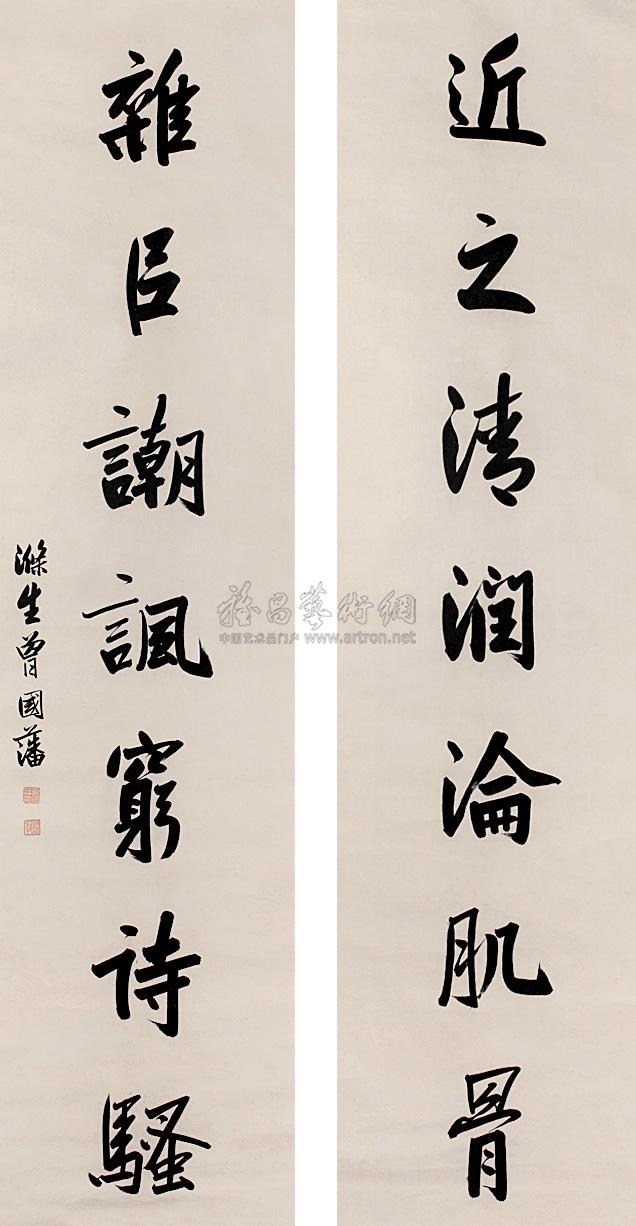 近之清润淪肌骨
雜㠯謿諷窮诗騷
滌生曾國藩
雅昌藝術網
中国艺术品门户 www.artron.net